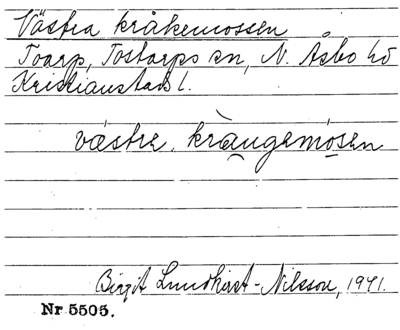 Västra kråkemossen
Toarp, Tostarps sn, N. Åsbo hd
Kristianstads l.
västre. kràngemósen
Birgit Lundkvist-Nilsson, 1941.
Nr 5505.